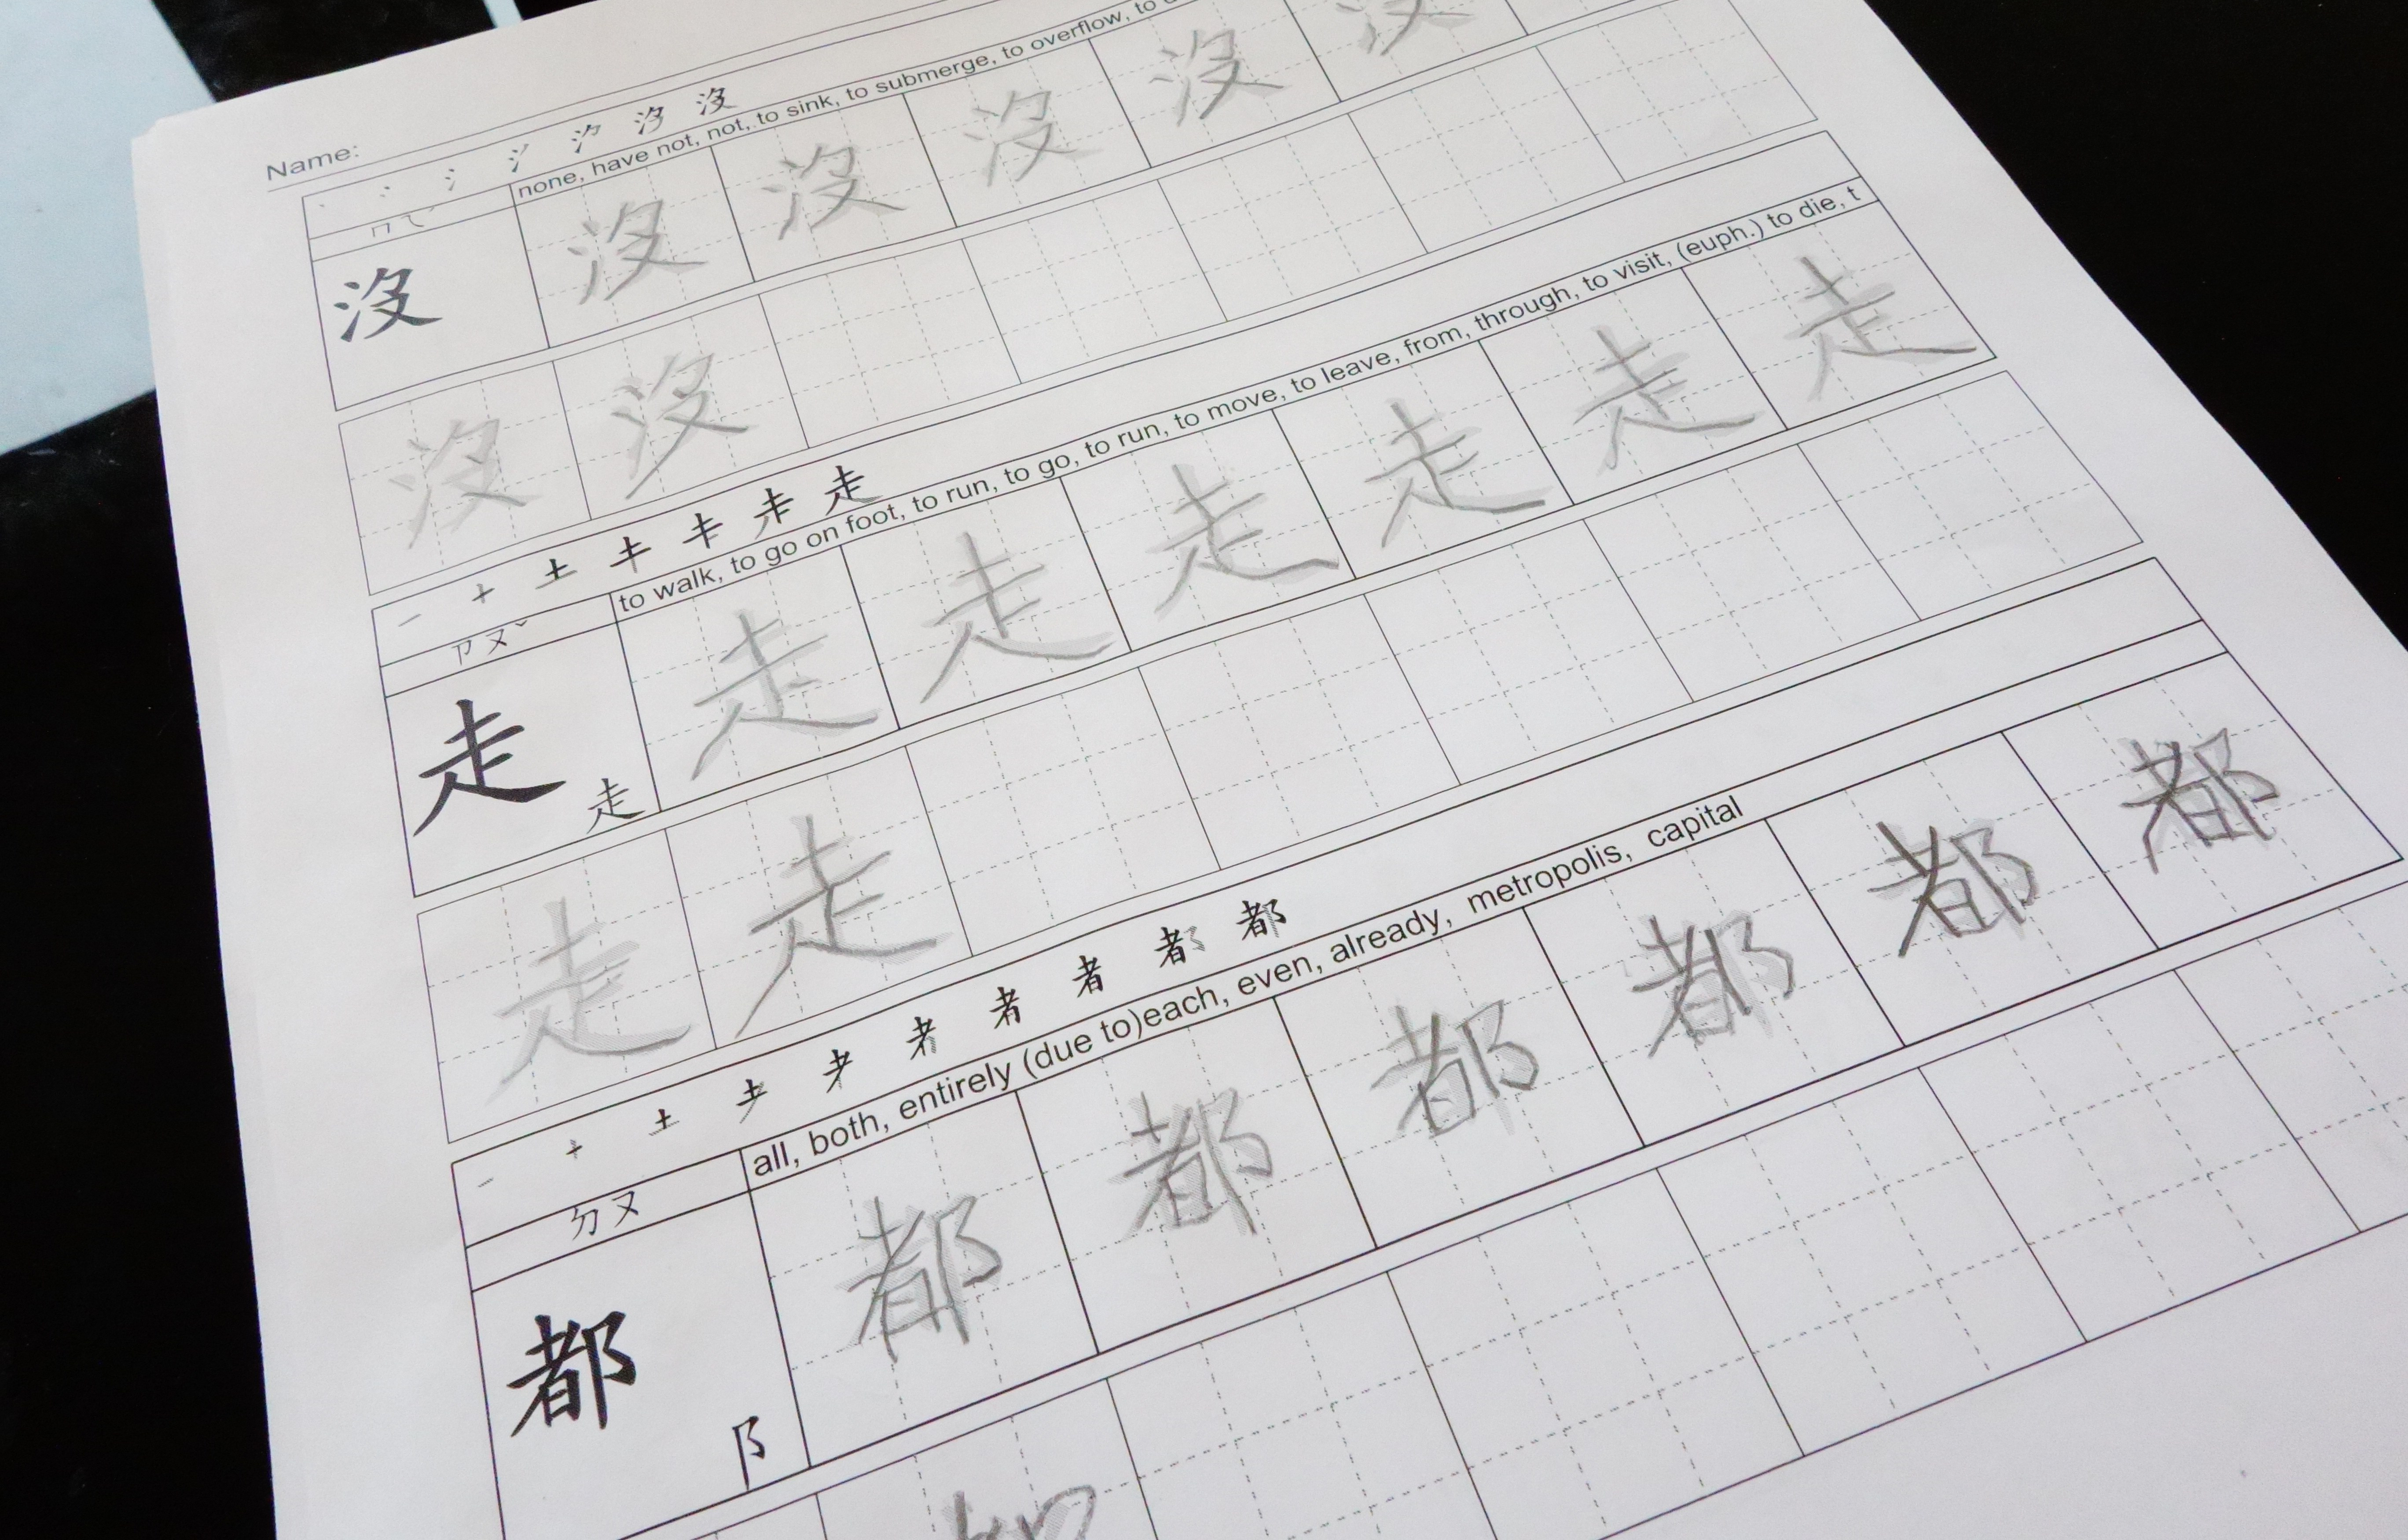 Name:
丶 冫 氵 沒 沒
ㄇㄟˊ none, have not, not, to sink, to submerge, to overflow, to
沒 沒 沒 沒 沒 沒
沒 沒
一 十 土 走
ㄗㄡˇ to walk, to go on foot, to run, to go, to run, to move, to leave, from, through, to visit, (euph.) to die, t
走 走 走 走 走 走 走 走
走 走
一 十 土 耂 者 者 都
ㄉㄡ all, both, entirely (due to)each, even, already, metropolis, capital
都 阝 都 都 都 都 都 都